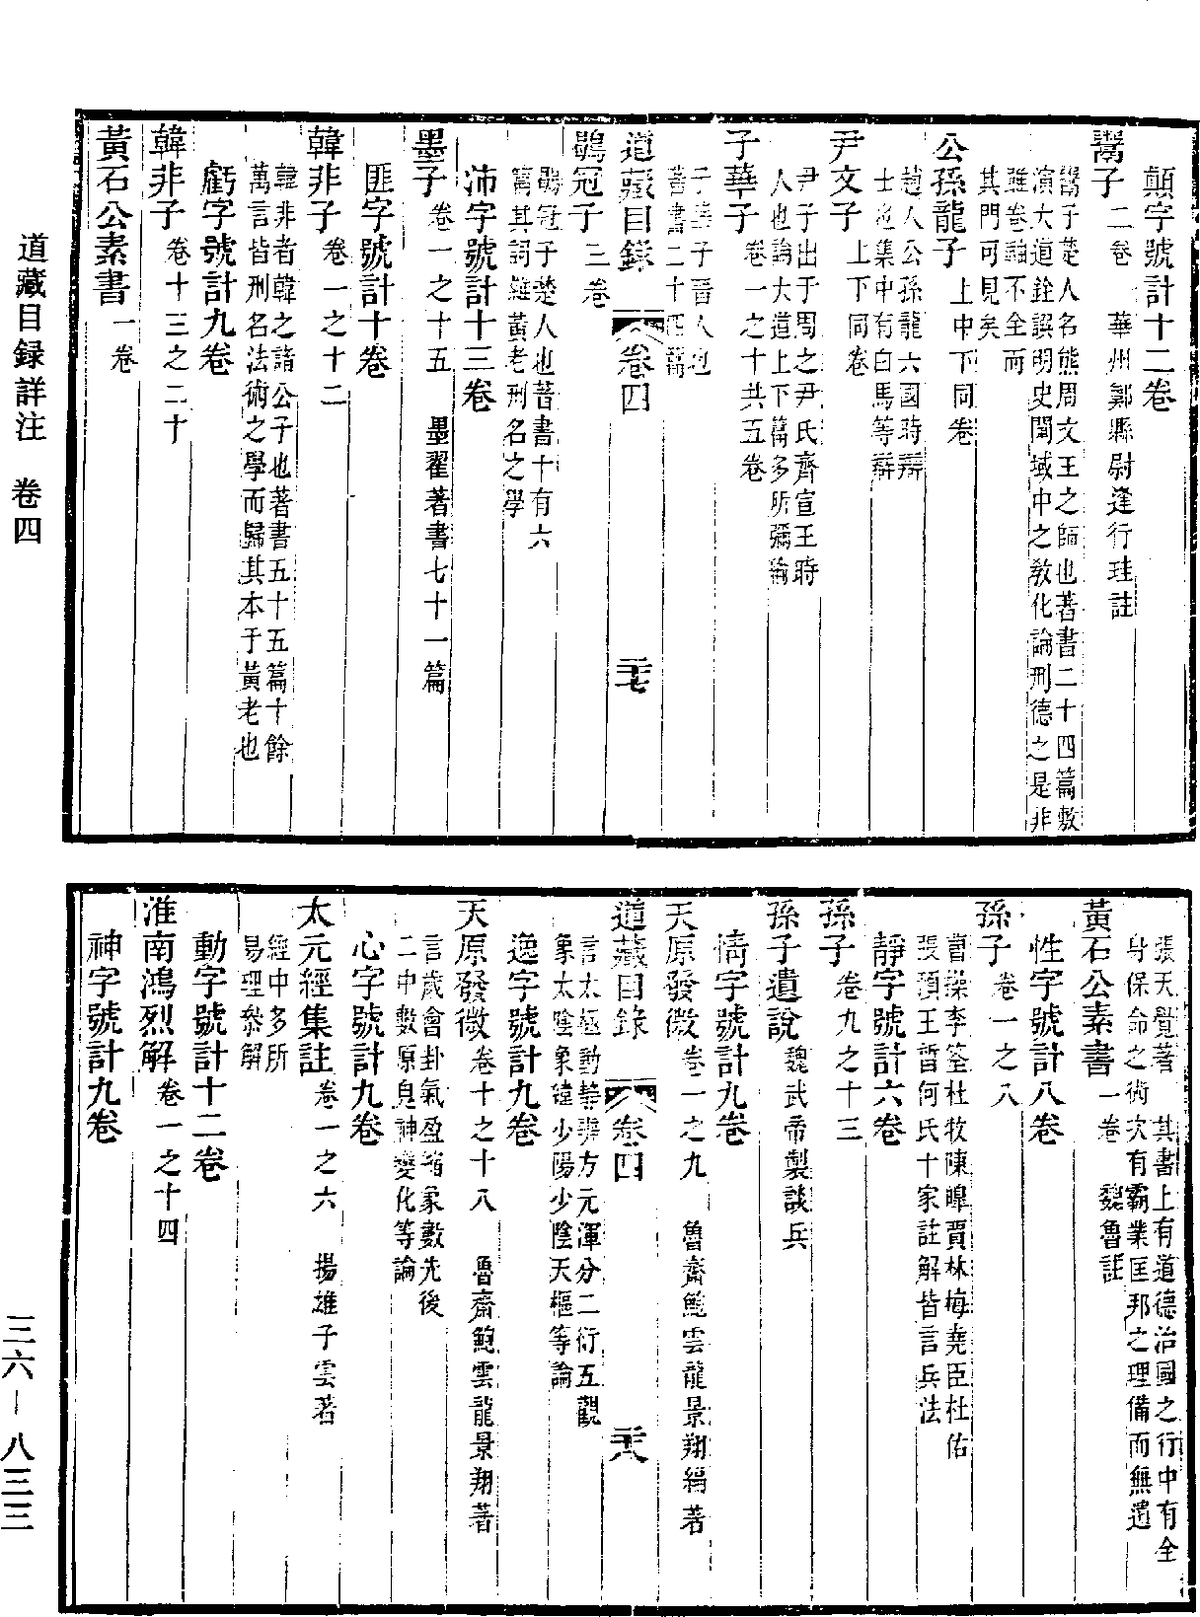 顛字號計十二卷
鬻子二卷 華州鄭縣尉逢行珪註
鬻子楚人名熊周文王之師也著書二十四篇敷
演大道銓譔明史闡域中之敎化論刑德之是非
雖卷軸不全而
其門可見矣
公孫龍子上中下同卷
趙人公孫龍六國時辯
士也集中有白馬等辯
尹文子上下同卷
尹子出于周之尹氏齊宣王時
人也論大道上下篇多所彌綸
子華子卷一之十共五卷
子華子晉人也
著書二十四篇
道藏目錄 卷四 二十七
鶡冠子三卷
鶡冠子楚人也著書十有六
篇其詞雜黃老刑名之學
沛字號計十三卷
墨子卷一之十五 墨翟著書七十一篇
匪字號計十卷
韓非子卷一之十二
韓非者韓之諸公子也著書五十五篇十餘
萬言皆刑名法術之學而歸其本于黃老也
虧字號計九卷
韓非子卷十三之二十
黃石公素書一卷
張天覺著 其書上有道德治國之行中有全
身保命之術次有霸業匡邦之理備而無遺
黃石公素書一卷 魏魯註
性字號計八卷
孫子卷一之八
曹操李筌杜牧陳皥賈林梅堯臣杜佑
張預王晳何氏十家註解皆言兵法
靜字號計六卷
孫子卷九之十三
孫子遺說 魏武帝製談兵
情字號計九卷
天原發微卷一之九 魯齋鮑雲龍景翔編著
言太極動靜辨方元渾分二衍五觀
象太陰象緯少陽少陰天樞等論
道藏目錄 卷四 二十八
逸字號計九卷
天原發微卷十之十八 魯齋鮑雲龍景翔著
言歲會卦氣盈縮象數先後
二中數原鬼神變化等論
心字號計九卷
太元經集註卷一之六 揚雄子雲著
經中多所
易理叅解
動字號計十二卷
淮南鴻烈解卷一之十四
神字號計九卷
道藏目録詳注 卷四
三六－八三三